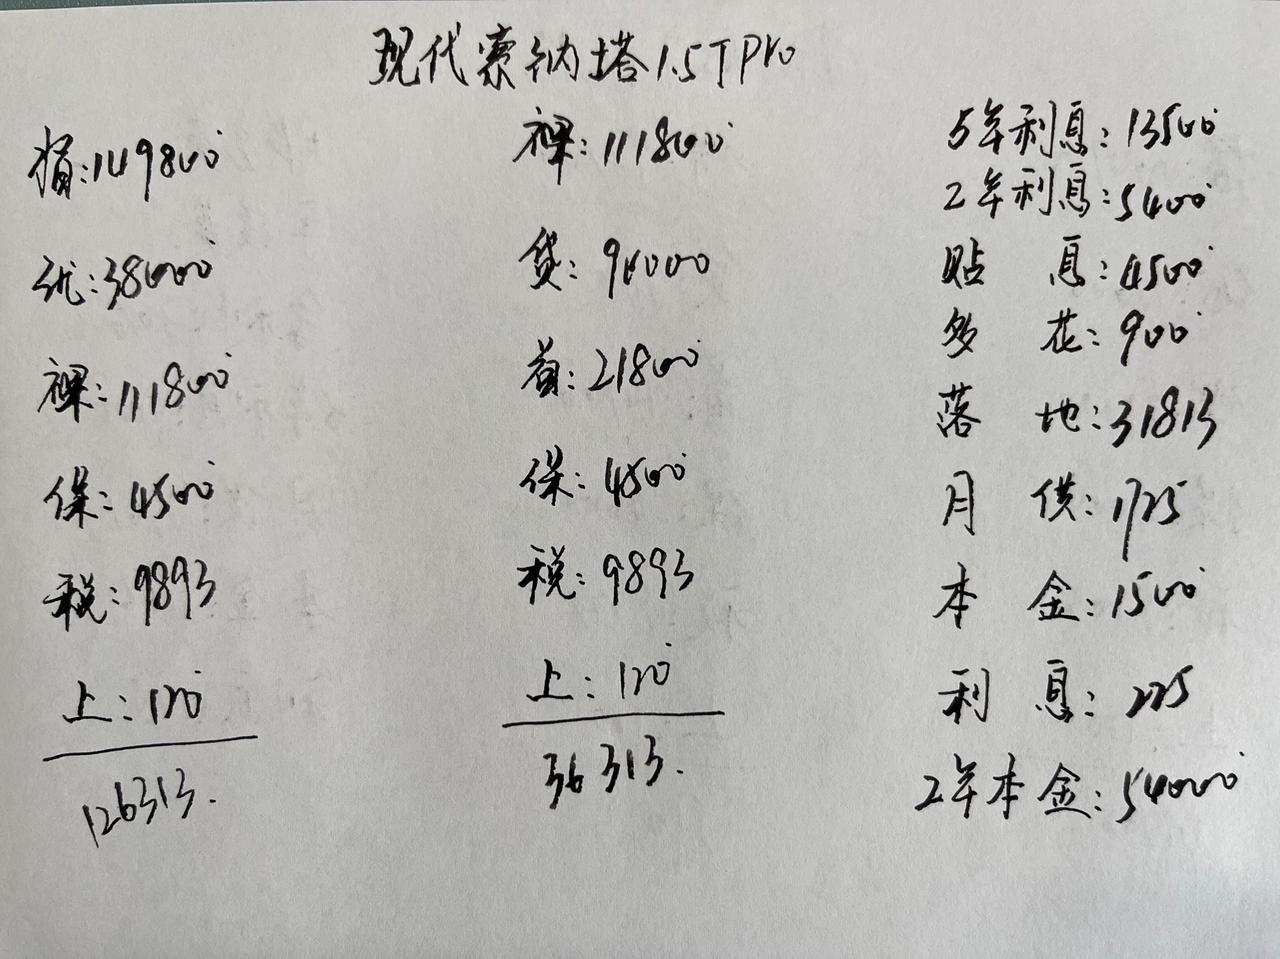 现代索纳塔1.5TPro
指:149800
优:38000
裸:111800
保:4500
税:9893
上:120
126313.
裸:111800
贷:90000
首:21800
保:4500
税:9893
上:120
36313.
5年利息:13500
2年利息:5400
贴 息:4500
多 花:900
落 地:31813
月 供:1725
本 金:1500
利 息:225
2年本金:54000